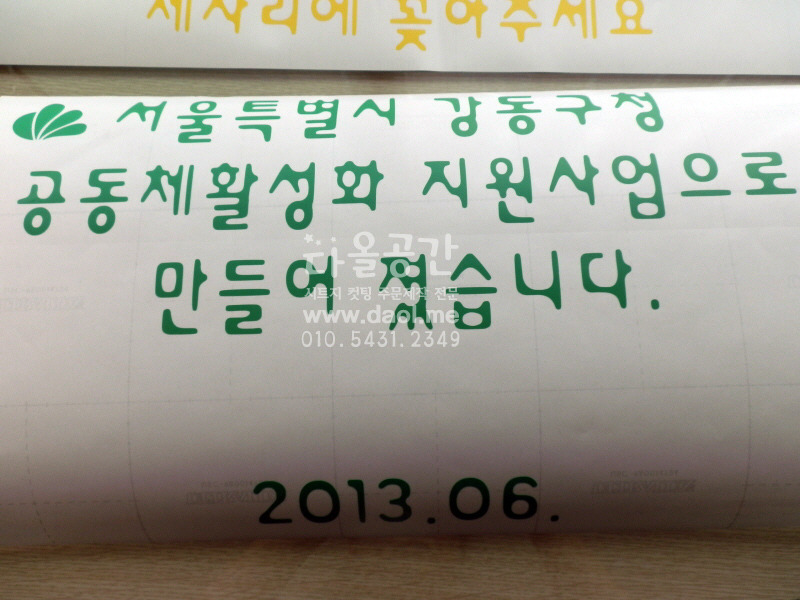 제자리에 꽂아주세요
서울특별시 강동구청
공동체활성화 지원사업으로
만들어 졌습니다.
다올공간
시트지 컷팅 주문제작 전문
www.daol.me
010.5431.2349
2013.06.